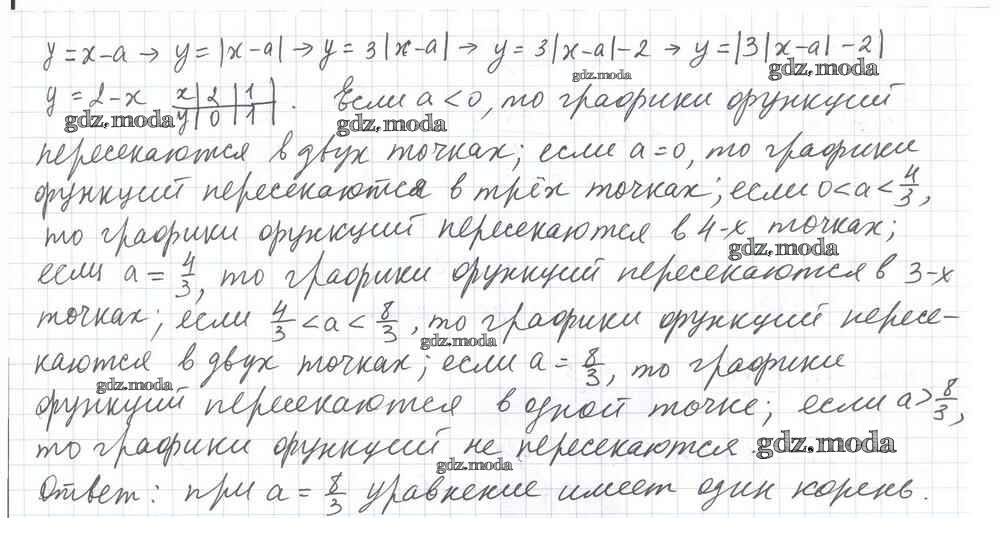 y = x-a → y = |x-a| → y = 3|x-a| → y = 3|x-a|-2 → y = |3|x-a|-2|
gdz.moda
gdz.moda
y = 2-x x| 2 | 1 | y| 0 | 1 | . Если a < 0, то графики функций
gdz.moda
gdz.moda
пересекаются в двух точках; если a = 0, то графики
функций пересекаются в трёх точках; если 0 < a < 4/3,
то графики функций пересекаются в 4-х точках;
gdz.moda
если a = 4/3, то графики функций пересекаются в 3-х
точках; если 4/3 < a < 8/3, то графики функций пересе-
gdz.moda
каются в двух точках; если a = 8/3, то графики
gdz.moda
функций пересекаются в одной точке; если a > 8/3,
то графики функций не пересекаются.
gdz.moda
gdz.moda
Ответ: при a = 8/3 уравнение имеет один корень.